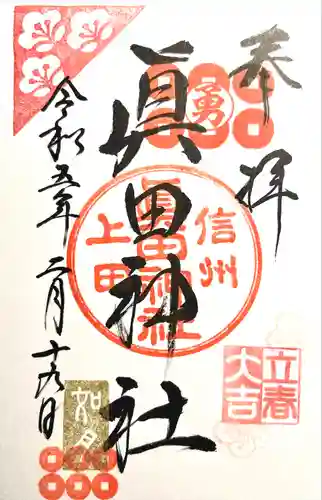 奉拝
勇
眞田神社
信州
眞田神社
上田
立春
大吉
令和五年二月十九日
如月